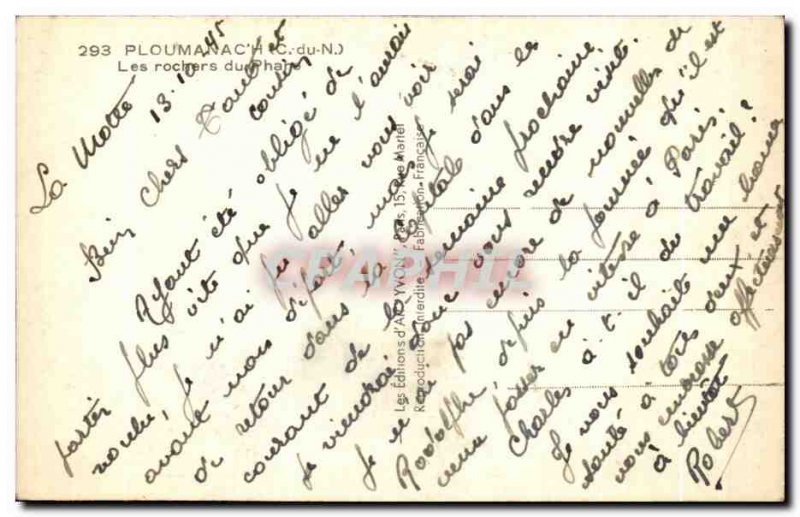 293 PLOUMANAC'H (C.-du-N.)
Les rochers du Phare
La Motte 13.10.45
Bien chers Tante et cousin,
Ayant été obligé de
partir plus vite que je ne l'aurai
voulu, je n'ai pu aller vous voir
avant mon départ, mais je serai
de retour dans la capitale dans le
courant de la semaine prochaine,
je viendrai donc vous rendre visite.
Je n'ai pas encore de nouvelles de
Rodolphe, depuis la journée qu'il est
venu passer en vitesse à Paris.
Charles a-t-il du travail?
Je vous souhaite une bonne
santé à tous deux et
vous embrasse affectueusement
à bientôt
Robert
Les Éditions d'Art "YVON", Paris, 15, Rue Martel
Reproduction Interdite Fabrication Française
CPAPHIL